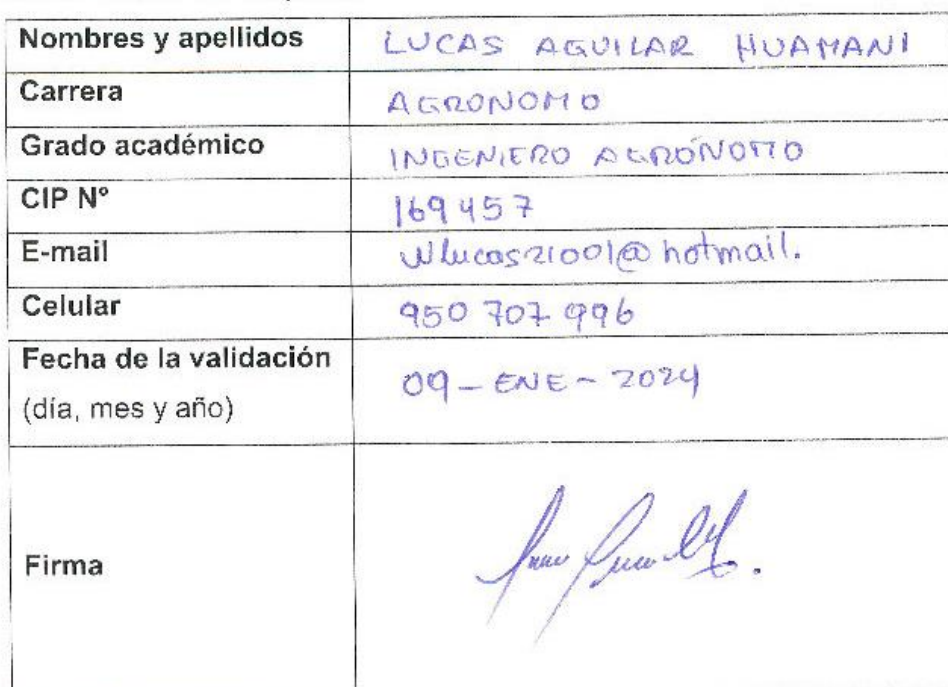 Nombres y apellidos LUCAS AGUILAR HUAMANI
Carrera AGRONOMO
Grado académico INGENIERO AGRÓNOMO
CIP Nº 169457
E-mail Wlucas21001@hotmail.
Celular 950 707 996
Fecha de la validación
(día, mes y año) 09-ENE-2024
Firma